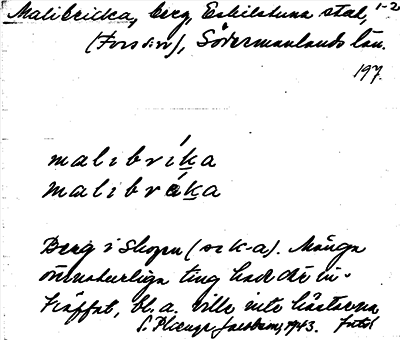 Malibricka, berg, Eskilstuna stad, 1-2
(Fors sn), Södermanlands län.
197.
malibríka
malibráka
Berg i skogen (se k-a). Många
övernaturliga ting hade där in-
träffat, bl.a. ville inte hästarna
S. Plænge Jacobson, 1943.